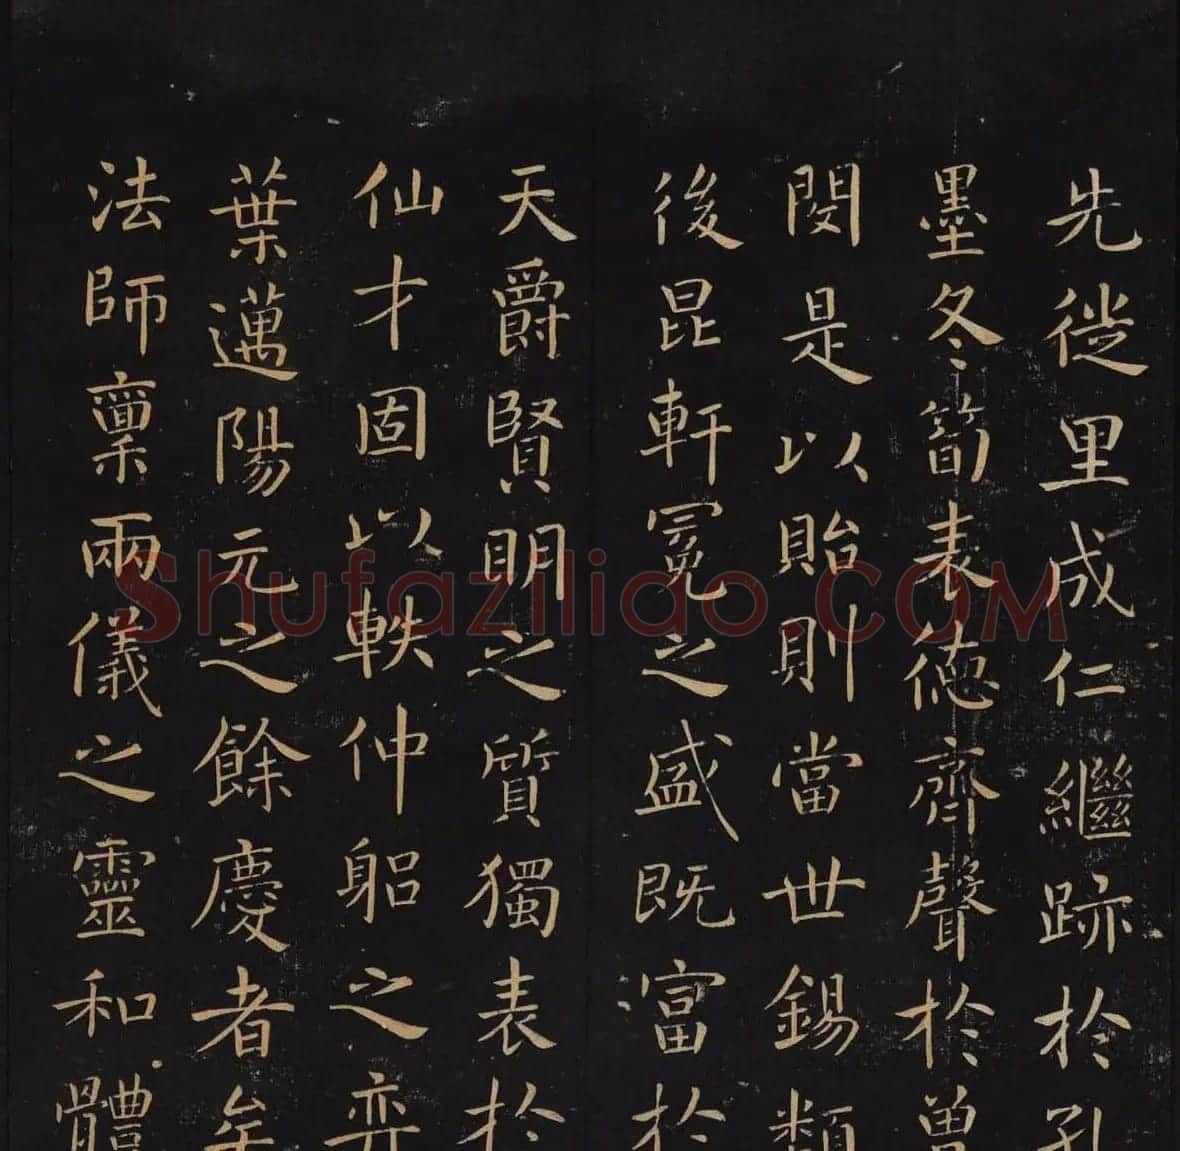 先從里成仁繼跡於孔
墨冬筍表德齊聲於曾
閔是以貽則當世錫類
後昆軒冕之盛既富於
天爵賢明之質獨表於
仙才固以軼仲躳之弈
葉邁陽元之餘慶者矣
法師稟兩儀之靈和體
Shufaziliao.COM